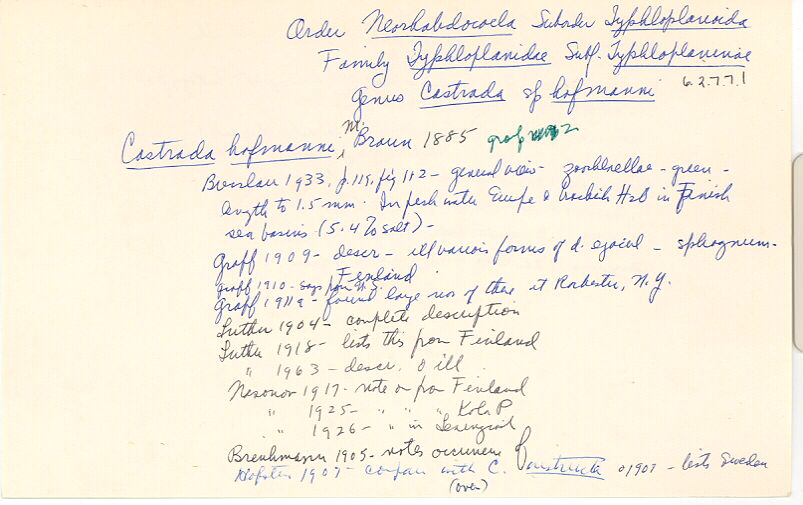 Order Neorhabdocoela Suborder Typhloplanoida
Family Typhloplanidae Subf. Typhloplaninae
Genus Castrada sp hofmanni 6.2.7.7.1
Castrada hofmanni, M. Braun 1885 graf
Bresslau 1933, p.119, fig 112 - general view - zoochlorellae - green -
length to 1.5 mm. In fresh water Europe & brackish H2O in Finnish
sea basins (5.4 % salt) -
Graff 1909 - descr - ill various forms of d. ejacul - sphagnum -
Graff 1910 - says from U.S. Finland
Graff 1911a - found large nos of these at Rochester, N.Y.
Luther 1904 - complete description
Luther 1918 - lists this from Finland
" 1963 - descr. o ill
Nasonov 1917 - note on from Finland
" 1925 - " " " Kola P
" 1926 - " in
1905 - notes occurrence
Hofsten 1907 - compare with C. o 1907 - lists Sweden
(over)